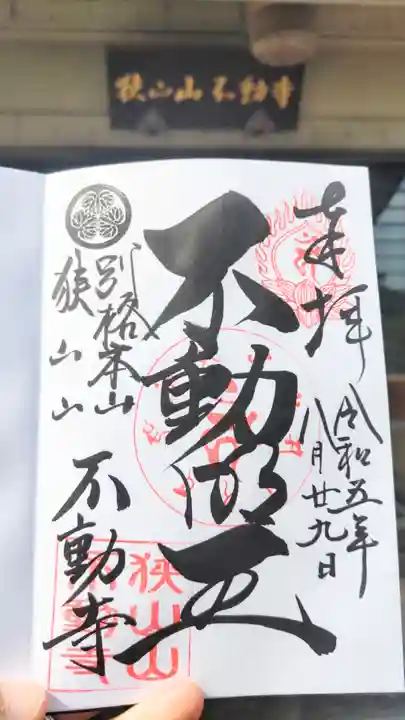 狭山山不動寺
奉拝
令和五年
八月廿九日
不動明王
別格本山
狭山山
不動寺
狭山山